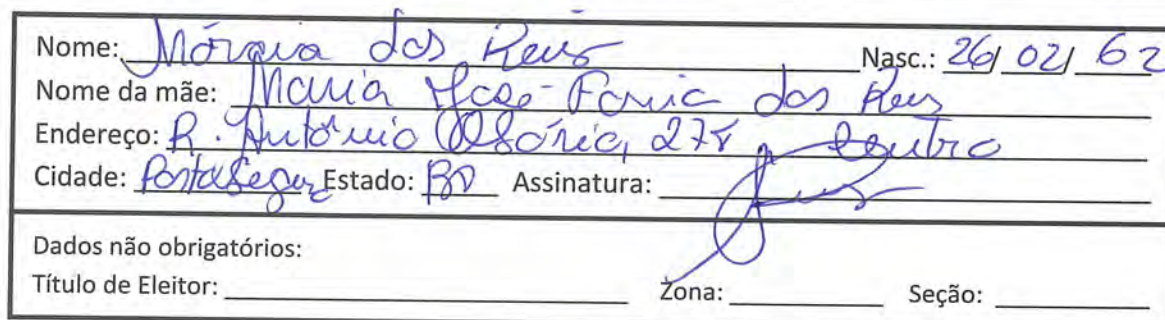 Nome: Márcia dos Reis Nasc.: 26/02/62
Nome da mãe: Maria José Faria dos Reis
Endereço: R. Antônio Osório, 278 Centro
Cidade: Porto Seguro Estado: BA Assinatura:
Dados não obrigatórios:
Título de Eleitor: Zona: Seção: